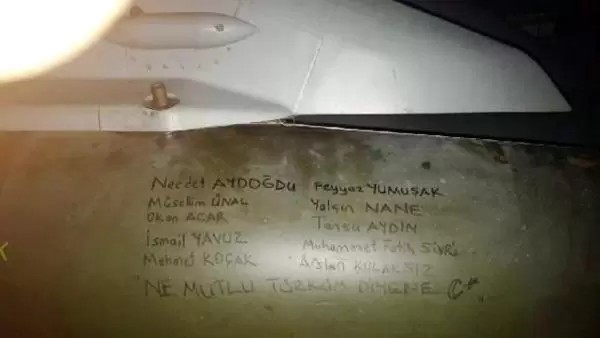 Necdet AYDOĞDU Feyyaz YUMUŞAK
Müslüm ÜNAL Yalçın NANE
Okan ACAR Tansu AYDIN
İsmail YAVUZ Muhammet Fatih SİVRİ
Mehmet KOÇAK Arslan KULAKSIZ
"NE MUTLU TÜRKÜM DİYENE C*"